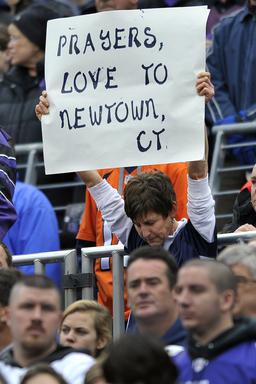 PRAYERS,
LOVE TO
NEWTOWN,
CT.